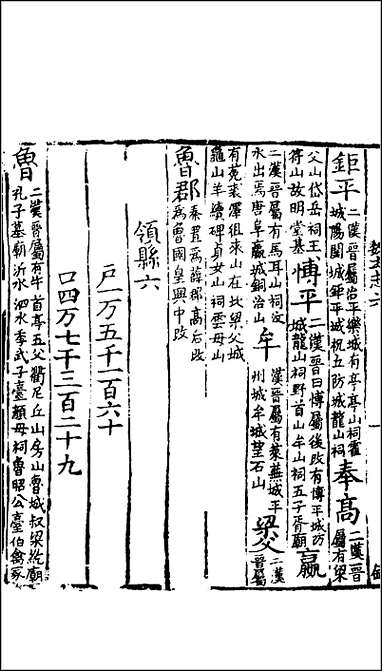 鉅平
二漢晉屬治平樂城有亭亭山祠霍
城陽關城鉅平城祝五防城龍山祠
奉高
二漢晉
屬有梁
父山岱岳祠王
符山故明堂基
博平
二漢晉曰博屬後改有博平城防
城龍山祠野首山牟山祠五子胥廟
嬴
二漢晉屬有馬耳山祠汶
水出焉唐阜嬴城銅冶山
牟
漢晉屬有萊蕪城平
州城牟城望石山
梁父
二漢
晉屬
有菟裘澤徂來山在北梁父城
龜山羊續碑貞女山祠雲母山
魯郡
秦置為薛郡高后改
為魯國皇興中改
領縣六
戶一万五千一百六十
口四万七千三百二十九
魯
二漢晉屬有牛首亭五父衢尼丘山房山魯城叔梁紇廟
孔子墓廟沂水泗水季武子臺顏母祠魯昭公臺伯禽冢